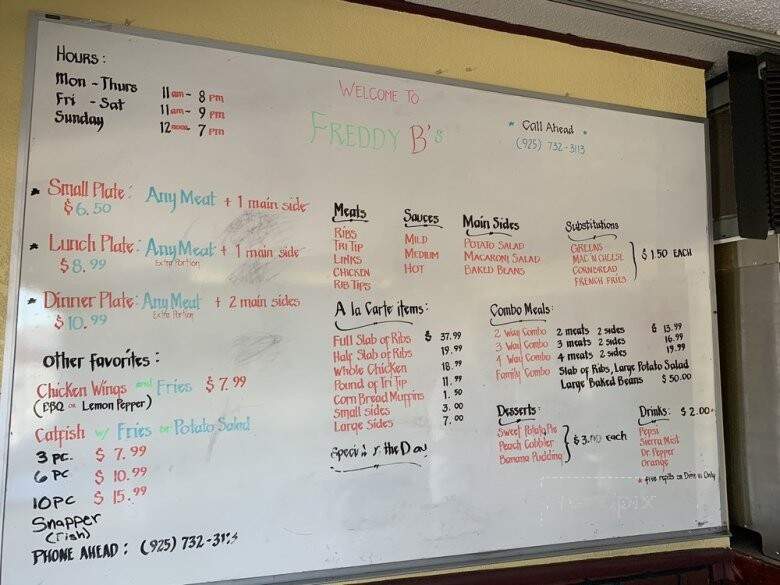 HOURS:
Mon - Thurs 11am - 8 pm
Fri - Sat 11am - 9 pm
Sunday 12noon 7 pm
WELCOME TO
FREDDY B's
* Call Ahead *
(925) 732-3113
* Small Plate: Any Meat + 1 main side
$6.50
* Lunch Plate: Any Meat + 1 main side
Extra Portion
$8.99
* Dinner Plate: Any Meat + 2 main sides
Extra Portion
$10.99
Other favorites:
Chicken Wings and Fries $7.99
(BBQ or Lemon Pepper)
Catfish w/ Fries or Potato Salad
3 PC. $7.99
6 PC $10.99
10PC $15.99
Snapper
(Fish)
PHONE AHEAD: (925) 732-3113
Meats
RIBS
TRI TIP
LINKS
CHICKEN
RIB TIPS
Sauces
MILD
MEDIUM
HOT
Main Sides
POTATO SALAD
MACARONI SALAD
BAKED BEANS
Substitutions
GREENS
MAC 'N CHEESE
CORNBREAD
FRENCH FRIES
$1.50 EACH
A la Carte items:
Full Slab of Ribs $ 37.99
Half Slab of Ribs 19.99
Whole Chicken 18.99
Pound of Tri Tip 11.99
Corn Bread Muffins 1.50
Small sides 3.00
Large Sides 7.00
Combo Meals:
2 Way Combo 2 meats 2 sides $ 13.99
3 Way Combo 3 meats 2 sides 16.99
4 Way Combo 4 meats 2 sides 19.99
Family Combo Slab of Ribs, Large Potato Salad
Large Baked Beans $50.00
Desserts:
Sweet Potato Pie
Peach Cobbler
Banana Pudding
$3.00 each
Drinks: $2.00
Pepsi
Sierra Mist
Dr. Pepper
Orange
* free refills on Dine in Only
the Day